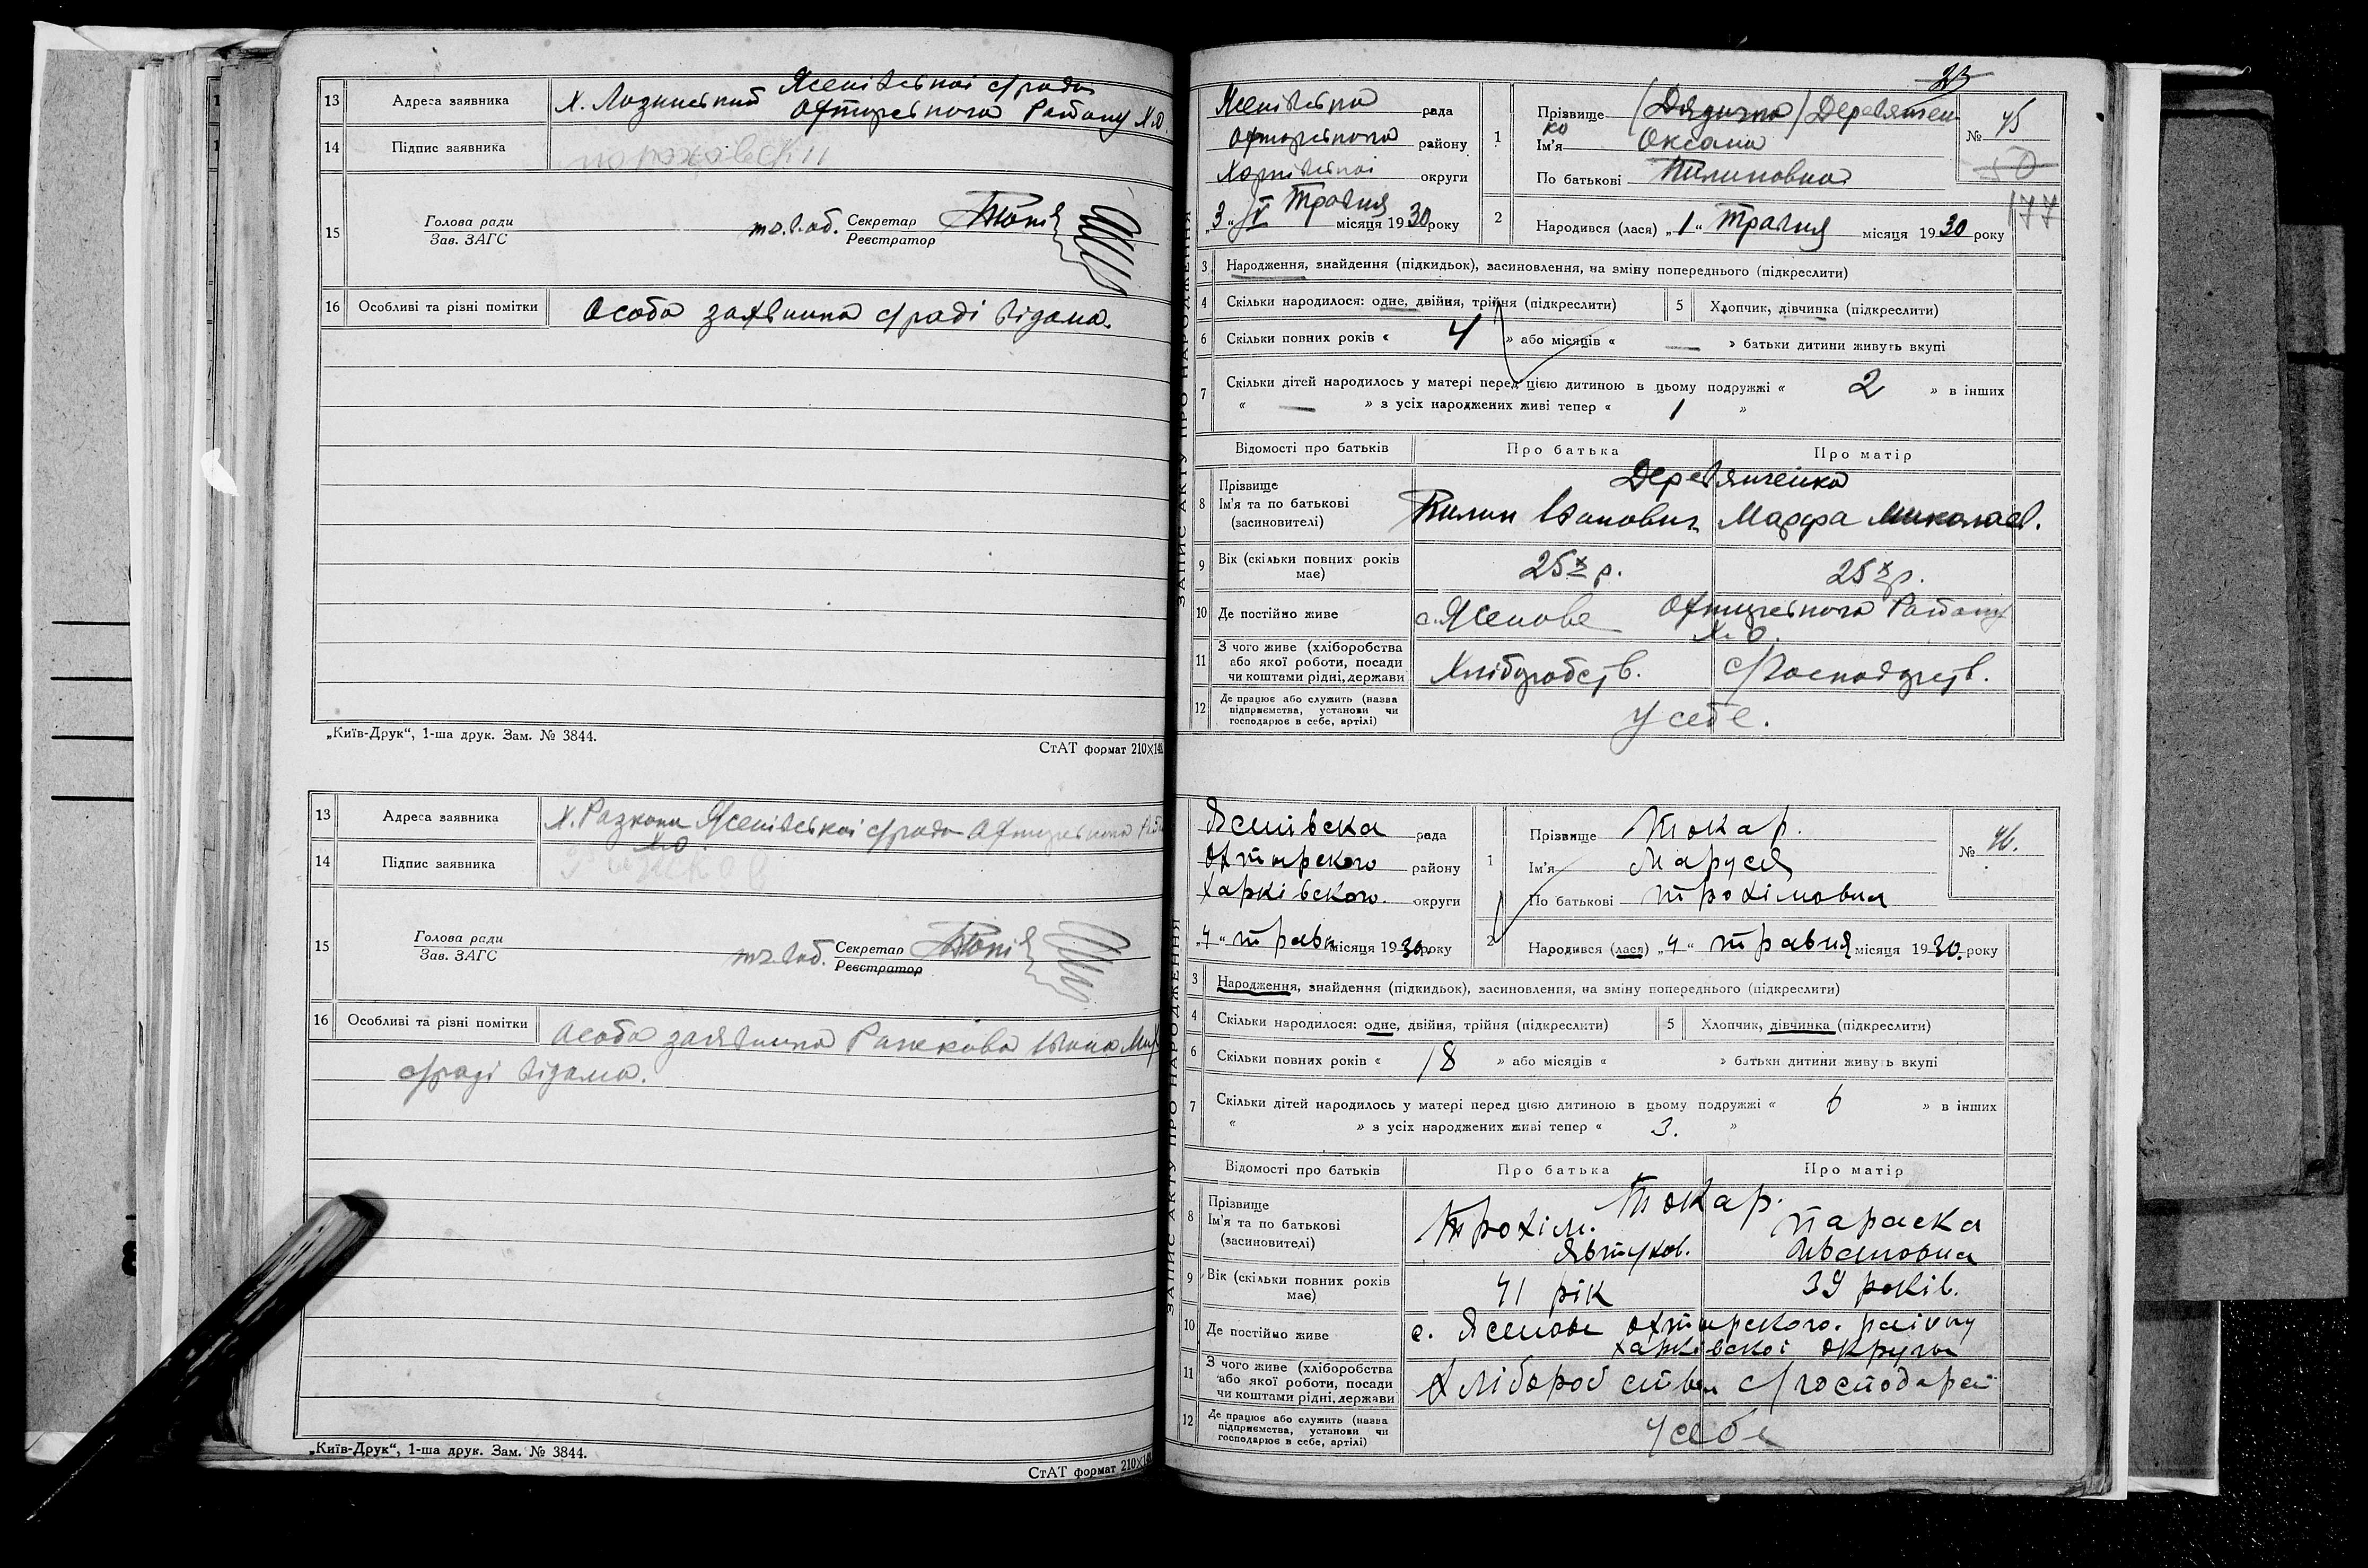 13 Адреса заявника Х. Лозинський Ясенівської с/ради
Охтирського Району Х.О.
14 Підпис заявника
15 Голова ради
Зав. ЗАГС
Секретар
Реєстратор
16 Особливі та різні помітки Особа заявника с/раді відома.
„Київ-Друк“, 1-ша друк. Зам. № 3844.
СтАТ формат 210×148
13 Адреса заявника Ясенівської с/ради Охтирського
Х.О.
14 Підпис заявника
15 Голова ради
Зав. ЗАГС
Секретар
Реєстратор
16 Особливі та різні помітки Особа заявника Рижкова Івана Мих
с/раді відома.
„Київ-Друк“, 1-ша друк. Зам. № 3844.
СтАТ формат 210×148
23
ЗАПИС АКТУ ПРО НАРОДЖЕННЯ
Ясенівська рада
Охтирського району
Харківської округи
„3“ IV Травня місяця 1930 року
1 Прізвище Деревянчен
ко
Ім'я Оксана
По батькові Пилиповна
№ 45
50
177
2 Народився (лася) „1“ Травня місяця 1930 року
3 Народження, знайдення (підкидьок), засиновлення, на зміну попереднього (підкреслити)
4 Скільки народилося: одне, двійня, трійня (підкреслити) 5 Хлопчик, дівчинка (підкреслити)
6 Скільки повних років « 4 » або місяців « — » батьки дитини живуть вкупі
7 Скільки дітей народилось у матері перед цією дитиною в цьому подружжі « 2 » в інших
« — » з усіх народжених живі тепер « 1 »
Відомості про батьків Про батька Про матір
8 Прізвище
Ім'я та по батькові
(засиновителі)
Деревянченко
Пилип Іванович Марфа Миколаєв.
9 Вік (скільки повних років
має)
25 р. 25 р.
10 Де постійно живе с. Ясенове Охтирського Району
Х.О.
11 З чого живе (хліборобства
або якої роботи, посади
чи коштами рідні, держави
Хлібробств. с/господарств.
12 Де працює або служить (назва
підприємства, установи чи
господарює в себе, артілі)
У себе.
ЗАПИС АКТУ ПРО НАРОДЖЕННЯ
Ясенівска рада
Охтирского району
Харківского. округи
„4“ травн місяця 1930. року
1 Прізвище Токар.
Ім'я Маруся
По батькові Трохімовна
№ 46.
2 Народився (лася) „4“ травня місяця 1930. року
3 Народження, знайдення (підкидьок), засиновлення, на зміну попереднього (підкреслити)
4 Скільки народилося: одне, двійня, трійня (підкреслити) 5 Хлопчик, дівчинка (підкреслити)
6 Скільки повних років « 18 » або місяців « » батьки дитини живуть вкупі
7 Скільки дітей народилось у матері перед цією дитиною в цьому подружжі « 6 » в інших
« » з усіх народжених живі тепер « 3. »
Відомості про батьків Про батька Про матір
8 Прізвище
Ім'я та по батькові
(засиновителі)
Токар.
Трохім. Параска
Явтухов. Ивановна
9 Вік (скільки повних років
має)
41 рік 39 років.
10 Де постійно живе с. Ясенове Охтирского. району
Харківскоі округи
11 З чого живе (хліборобства
або якої роботи, посади
чи коштами рідні, держави
Хліборобства с/господарст
12 Де працює або служить (назва
підприємства, установи чи
господарює в себе, артілі)
У себе